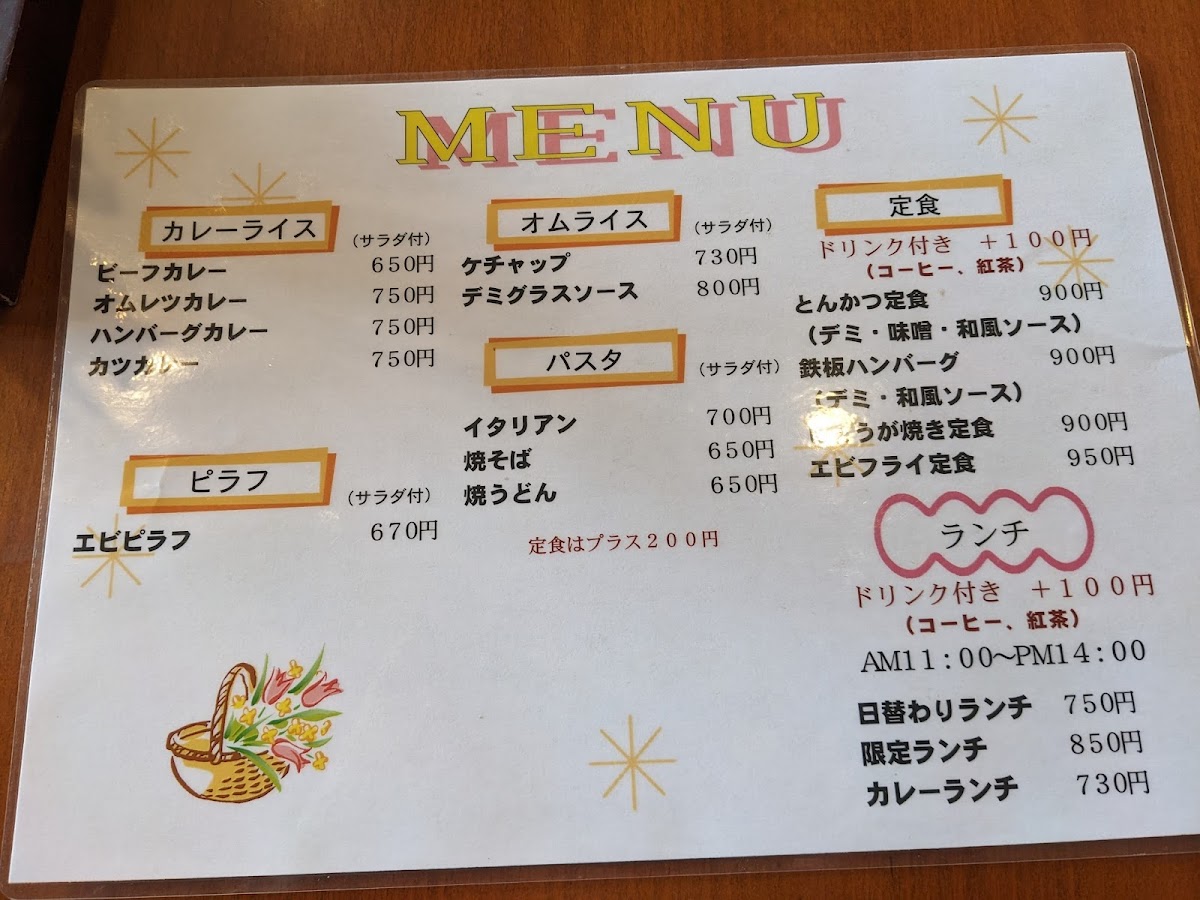 MENU
カレーライス
(サラダ付)
ビーフカレー 650円
オムレツカレー 750円
ハンバーグカレー 750円
カツカレー 750円
ピラフ
(サラダ付)
エビピラフ 670円
オムライス
(サラダ付)
ケチャップ 730円
デミグラスソース 800円
パスタ
(サラダ付)
イタリアン 700円
焼そば 650円
焼うどん 650円
定食はプラス200円
定食
ドリンク付き +100円
(コーヒー、紅茶)
とんかつ定食 900円
(デミ・味噌・和風ソース)
鉄板ハンバーグ 900円
(デミ・和風ソース)
しょうが焼き定食 900円
エビフライ定食 950円
ランチ
ドリンク付き +100円
(コーヒー、紅茶)
AM11:00~PM14:00
日替わりランチ 750円
限定ランチ 850円
カレーランチ 730円